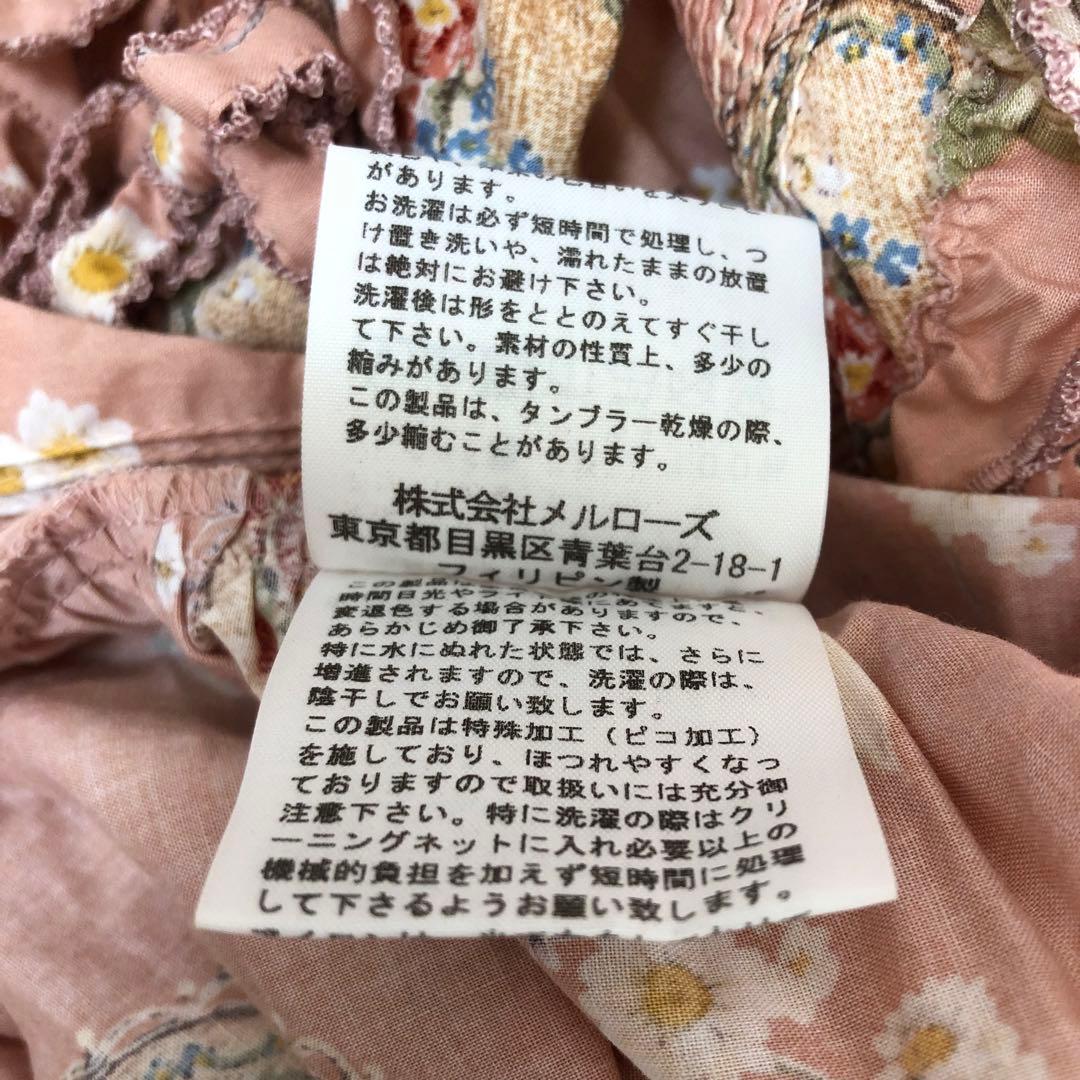 があります。
お洗濯は必ず短時間で処理し、つ
け置き洗いや、濡れたままの放置
は絶対にお避け下さい。
洗濯後は形をととのえてすぐ干し
て下さい。素材の性質上、多少の
縮みがあります。
この製品は、タンブラー乾燥の際、
多少縮むことがあります。
株式会社メルローズ
東京都目黒区青葉台2-18-1
フィリピン製
この製品は
時間日光やライト
変退色する場合がありますので、
あらかじめ御了承下さい。
特に水にぬれた状態では、さらに
増進されますので、洗濯の際は、
陰干しでお願い致します。
この製品は特殊加工（ピコ加工）
を施しており、ほつれやすくなっ
ておりますので取扱いには充分御
注意下さい。特に洗濯の際はクリ
ーニングネットに入れ必要以上の
機械的負担を加えず短時間に処理
して下さるようお願い致します。